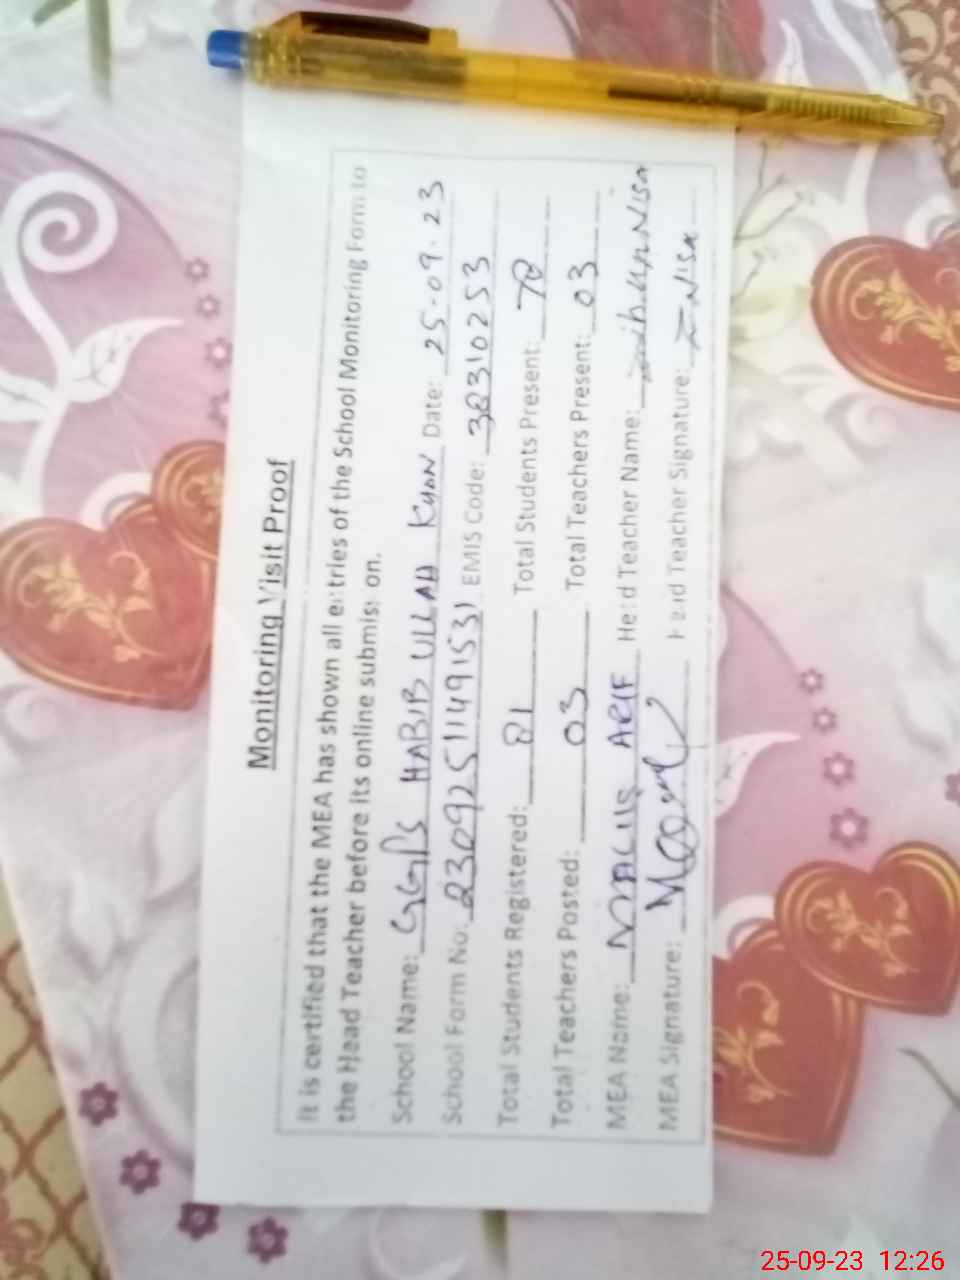 Monitoring Visit Proof
It is certified that the MEA has shown all entries of the School Monitoring Form to
the Head Teacher before its online submission.
School Name: GGPS HABIB ULLAH KHAN Date: 25-09-23
School Form No: 23092511491531 EMIS Code: 38310253
Total Students Registered: 81 Total Students Present: 78
Total Teachers Posted: 03 Total Teachers Present: 03
MEA Name: ARIF Head Teacher Name:
MEA Signature: Head Teacher Signature: Nisa
25-09-23 12:26